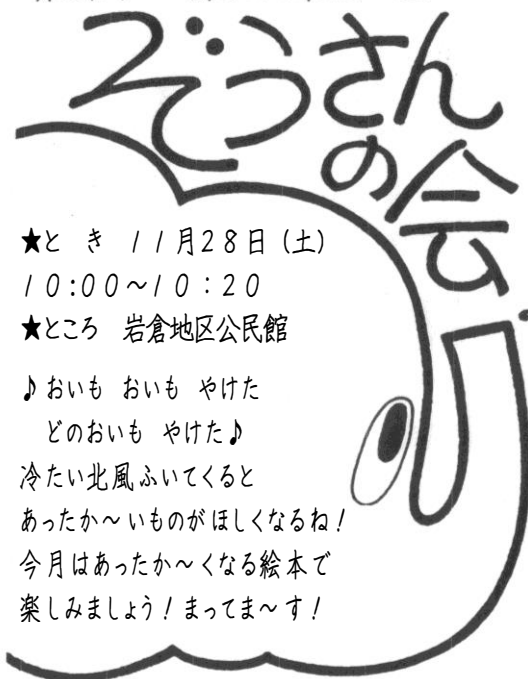 ぞうさん
の会
★と き 11月28日(土)
10:00~10:20
★ところ 岩倉地区公民館
♪おいも おいも やけた
どのおいも やけた♪
冷たい北風ふいてくると
あったか~いものがほしくなるね!
今月はあったか~くなる絵本で
楽しみましょう!まってま~す!